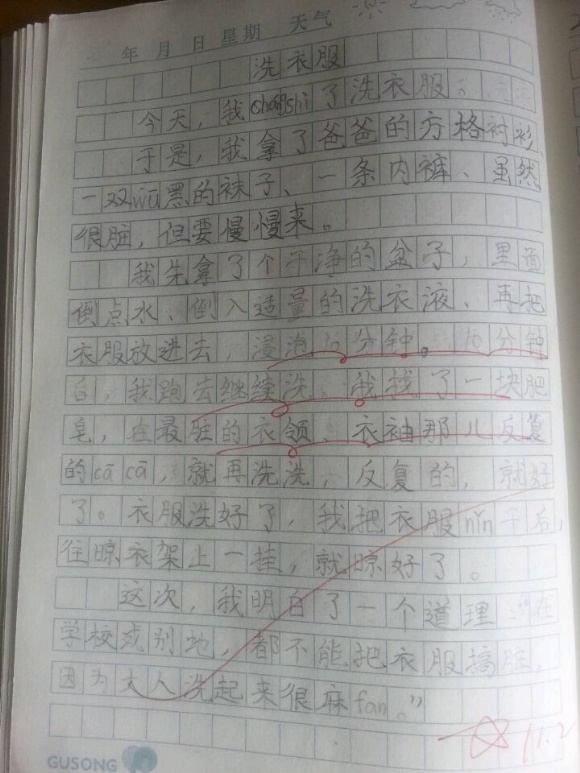 年 月 日 星期 天气
洗衣服
今天，我chángshì了洗衣服。
于是，我拿了爸爸的方格衬衫、
一双wū黑的袜子、一条内裤、虽然
很脏，但要慢慢来。
我先拿了个干净的盆子，里面
倒点水、倒入适量的洗衣液、再把
衣服放进去，浸泡10分钟。10分钟
后，我跑去继续洗、我找了一块肥
皂，在最脏的衣领、衣袖那儿反复
的cā cā，就再洗洗，反复的，就好
了。衣服洗好了，我把衣服nǐn干后，
往晾衣架上一挂，就晾好了。
这次，我明白了一个道理："在
学校或别地，都不能把衣服搞脏，
因为大人洗起来很麻fan。"
11.2
GUSONG